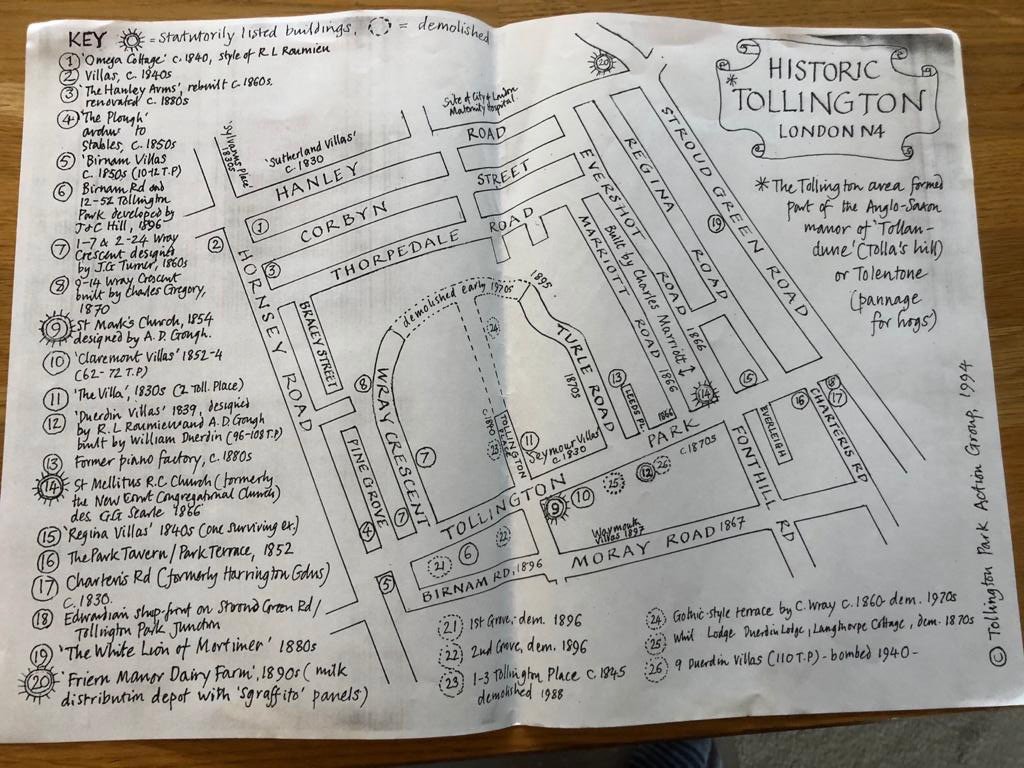 KEY = statutorily listed buildings, = demolished
1 'Omega Cottage' c.1840, style of R L Roumieu
2 Villas, c.1840s
3 'The Hanley Arms', rebuilt c.1860s,
renovated c.1880s
4 'The Plough'
archway to
stables, c.1850s
5 'Birnam Villas
c.1850s (10-12 T.P)
6 Birnam Rd and
12-52 Tollington
Park developed by
J & C Hill, 1896
7 1-7 & 2-24 Wray
Crescent designed
by J.G Turner, 1860s
8 9-14 Wray Crescent
built by Charles Gregory,
1870
9 St Mark's Church, 1854
designed by A.D. Gough.
10 'Claremont Villas' 1852-4
(62-72 T.P)
11 'The Villa', 1830s (2 Toll. Place)
12 'Duerdin Villas' 1839, designed
by R.L Roumieu and A.D Gough
built by William Duerdin (96-108 T.P)
13 Former piano factory, c.1880s
14 St Mellitus R.C Church (formerly
the New Court Congregational Church)
des. G.G Searle 1866
15 'Regina Villas' 1840s (one surviving ex.)
16 The Park Tavern / Park Terrace, 1852
17 Charteris Rd (formerly Harrington Gdns)
c.1830.
18 Edwardian shop-front on Stroud Green Rd /
Tollington Park Junction
19 'The White Lion of Mortimer' 1880s
20 'Friern Manor Dairy Farm', 1890s (milk
distribution depot with 'sgraffito' panels)
21 1st Grove, dem. 1896
22 2nd Grove, dem. 1896
23 1-3 Tollington Place c.1845
demolished 1988
24 Gothic-style terrace by C. Wray c.1860- dem. 1970s
25 Lodge Duerdin Lodge, Langthorpe Cottage, dem. 1870s
26 9 Duerdin Villas (110 T.P) - bombed 1940-
HISTORIC
* TOLLINGTON
LONDON N4
* The Tollington area formed
part of the Anglo-Saxon
manor of 'Tollan-
dune' (Tolla's hill)
or Tolentone
(pannage
for hogs)
© Tollington Park Action Group, 1994
'Sylvanus Place'
1830s
'Sutherland Villas'
c.1830
Site of City & London
Maternity Hospital
HANLEY ROAD
CORBYN STREET
THORPEDALE ROAD
HORNSEY ROAD
BRACEY STREET
PINE GROVE
WRAY CRESCENT
demolished early 1970s
1895
TURLE ROAD
1870s
c.1840
TOLLINGTON
PLACE
Seymour Villas
c.1830
TOLLINGTON PARK
c.1870s
EVERSHOT ROAD
1866
Built by Charles Marriott
MARRIOTT ROAD
1866
LEEDS PL.
1866
REGINA ROAD
STROUD GREEN ROAD
EVERLEIGH
FONTHILL RD
CHARTERIS RD
BIRNAM RD, 1896
MORAY ROAD 1867
Villas 1897
1
2
3
4
5
6
7
7
8
9
10
11
12
13
14
15
16
17
18
19
20
21
22
23
24
25
26